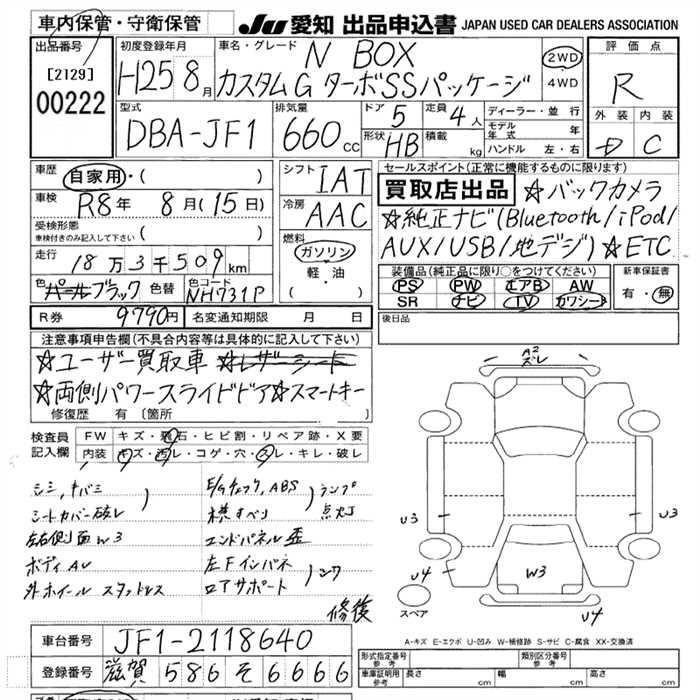 車内保管・守衛保管
JU 愛知 出品申込書 JAPAN USED CAR DEALERS ASSOCIATION
出品番号 初度登録年月 車名・グレード N BOX 2WD 評価点
[2129] H25 8月 カスタムG ターボSSパッケージ 4WD R
00222 外装 内装
型式 排気量 ドア 5 定員 4人 ディーラー・並行
DBA-JF1 660cc 形状 HB 積載 kg モデル年式 年 D C
ハンドル 左・右
車歴 自家用・( ) シフト IAT セールスポイント(正常に機能するものに限ります)
車検 R8年 8月(15日) 冷房 AAC 買取店出品 ☆バックカメラ
受検形態 ( ) ☆純正ナビ(Bluetooth/iPod/
車検付きのみ記入して下さい 燃料 AUX/USB/地デジ)☆ETC
走行 18万3千509km ガソリン
軽・油 装備品(純正品に限り○をつけてください) 新車保証書
色 パールブラック 色替 色コード NH731P PS PW エアB AW 有・無
SR ナビ TV カワシート
R券 9790円 名変通知期限 月 日 後日品
注意事項申告欄(不具合内容等は具体的に記入して下さい)
☆ユーザー買取車 ☆レザーシート
☆両側パワースライドドア☆スマートキー
修復歴 有 〔箇所
A2
ズレ
検査員 FW キズ・飛石・ヒビ割・リペア跡・X要
記入欄 内装 キズ・汚レ・コゲ・穴・スレ・キレ・破レ
シミ,キバミ ) E/Gチェック,ABS ) ランプ
シートカバー破レ 横すべり 点灯
左右側面W3 エンドパネル歪
ボディAU 左Fインパネ ) シワ
外ホイール スタッドレス ロアサポート
修復
U3 U3
U4 W3 U4
スペア
A-キズ E-エクボ U-凹み W-補修跡 S-サビ C-腐食 XX-交換済
車台番号 JF1-2118640
登録番号 滋賀 586 そ 6666
形式指定番号 参考 類別区分番号 参考
車庫証明用 参考 長さ cm 幅 cm 高さ cm